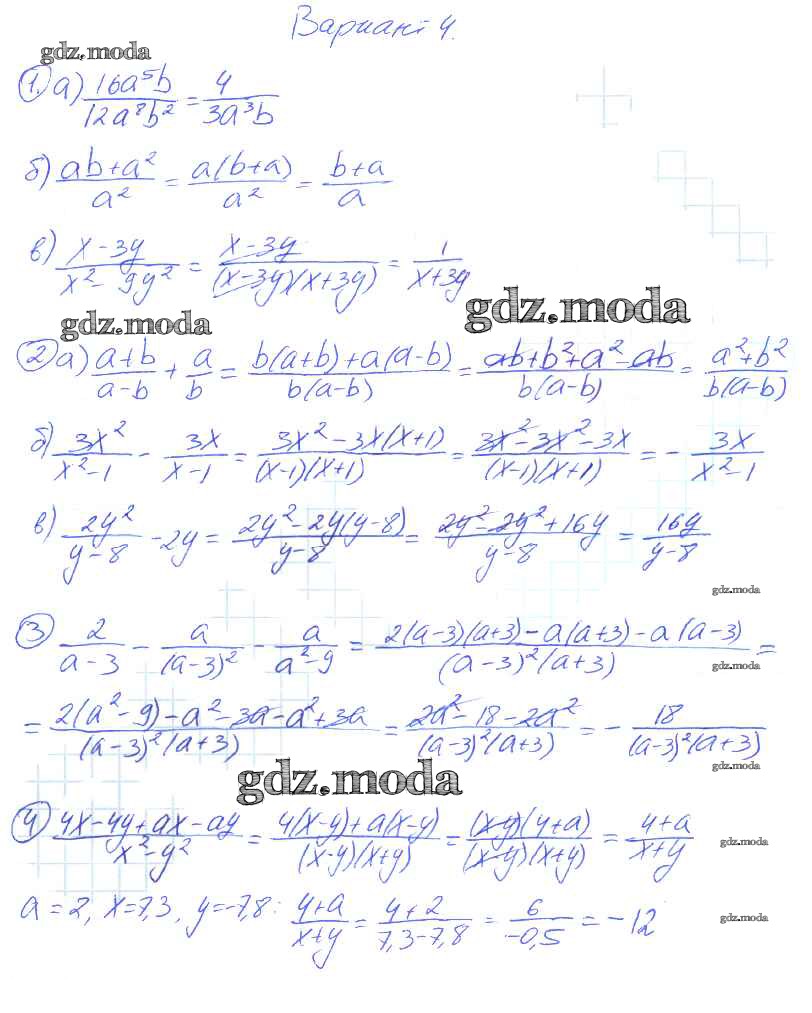 Вариант 4.
gdz.moda
1. а) 16a⁵b/12a⁸b² = 4/3a³b
б) ab+a²/a² = a(b+a)/a² = b+a/a
в) x-3y/x²-9y² = x-3y/(x-3y)(x+3y) = 1/x+3y
gdz.moda gdz.moda
2 а) a+b/a-b + a/b = b(a+b)+a(a-b)/b(a-b) = ab+b²+a²-ab/b(a-b) = a²+b²/b(a-b)
б) 3x²/x²-1 - 3x/x-1 = 3x²-3x(x+1)/(x-1)(x+1) = 3x²-3x²-3x/(x-1)(x+1) = - 3x/x²-1
в) 2y²/y-8 - 2y = 2y²-2y(y-8)/y-8 = 2y²-2y²+16y/y-8 = 16y/y-8
gdz.moda
3 2/a-3 - a/(a-3)² - a/a²-9 = 2(a-3)(a+3)-a(a+3)-a(a-3)/(a-3)²(a+3) =
gdz.moda
= 2(a²-9)-a²-3a-a²+3a/(a-3)²(a+3) = 2a²-18-2a²/(a-3)²(a+3) = - 18/(a-3)²(a+3)
gdz.moda
gdz.moda
4 4x-4y+ax-ay/x²-y² = 4(x-y)+a(x-y)/(x-y)(x+y) = (x-y)(4+a)/(x-y)(x+y) = 4+a/x+y
gdz.moda
a=2, x=7,3, y=-7,8: 4+a/x+y = 4+2/7,3-7,8 = 6/-0,5 = -12
gdz.moda